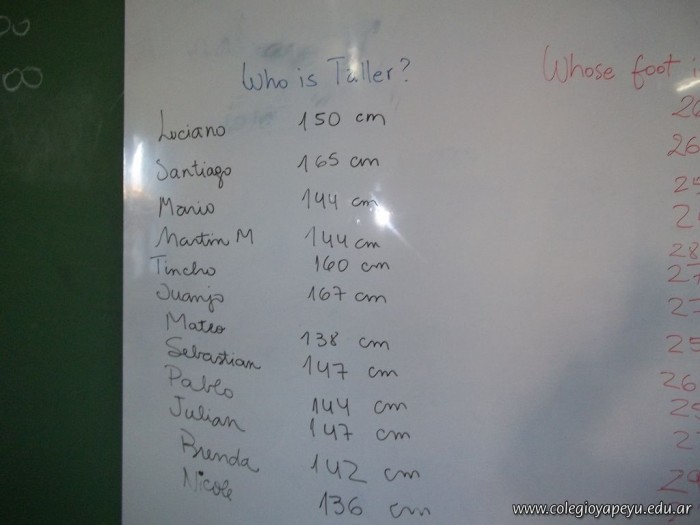 Who is Taller?
Whose foot i
Luciano 150 cm
Santiago 165 cm
Mario 144 cm
Martin M 144 cm
Tincho 160 cm
Juanjo 167 cm
Mateo 138 cm
Sebastian 147 cm
Pablo 144 cm
Julian 147 cm
Brenda 142 cm
Nicole 136 cm
26
25
28
27
25
26
www.colegioyapeyu.edu.ar